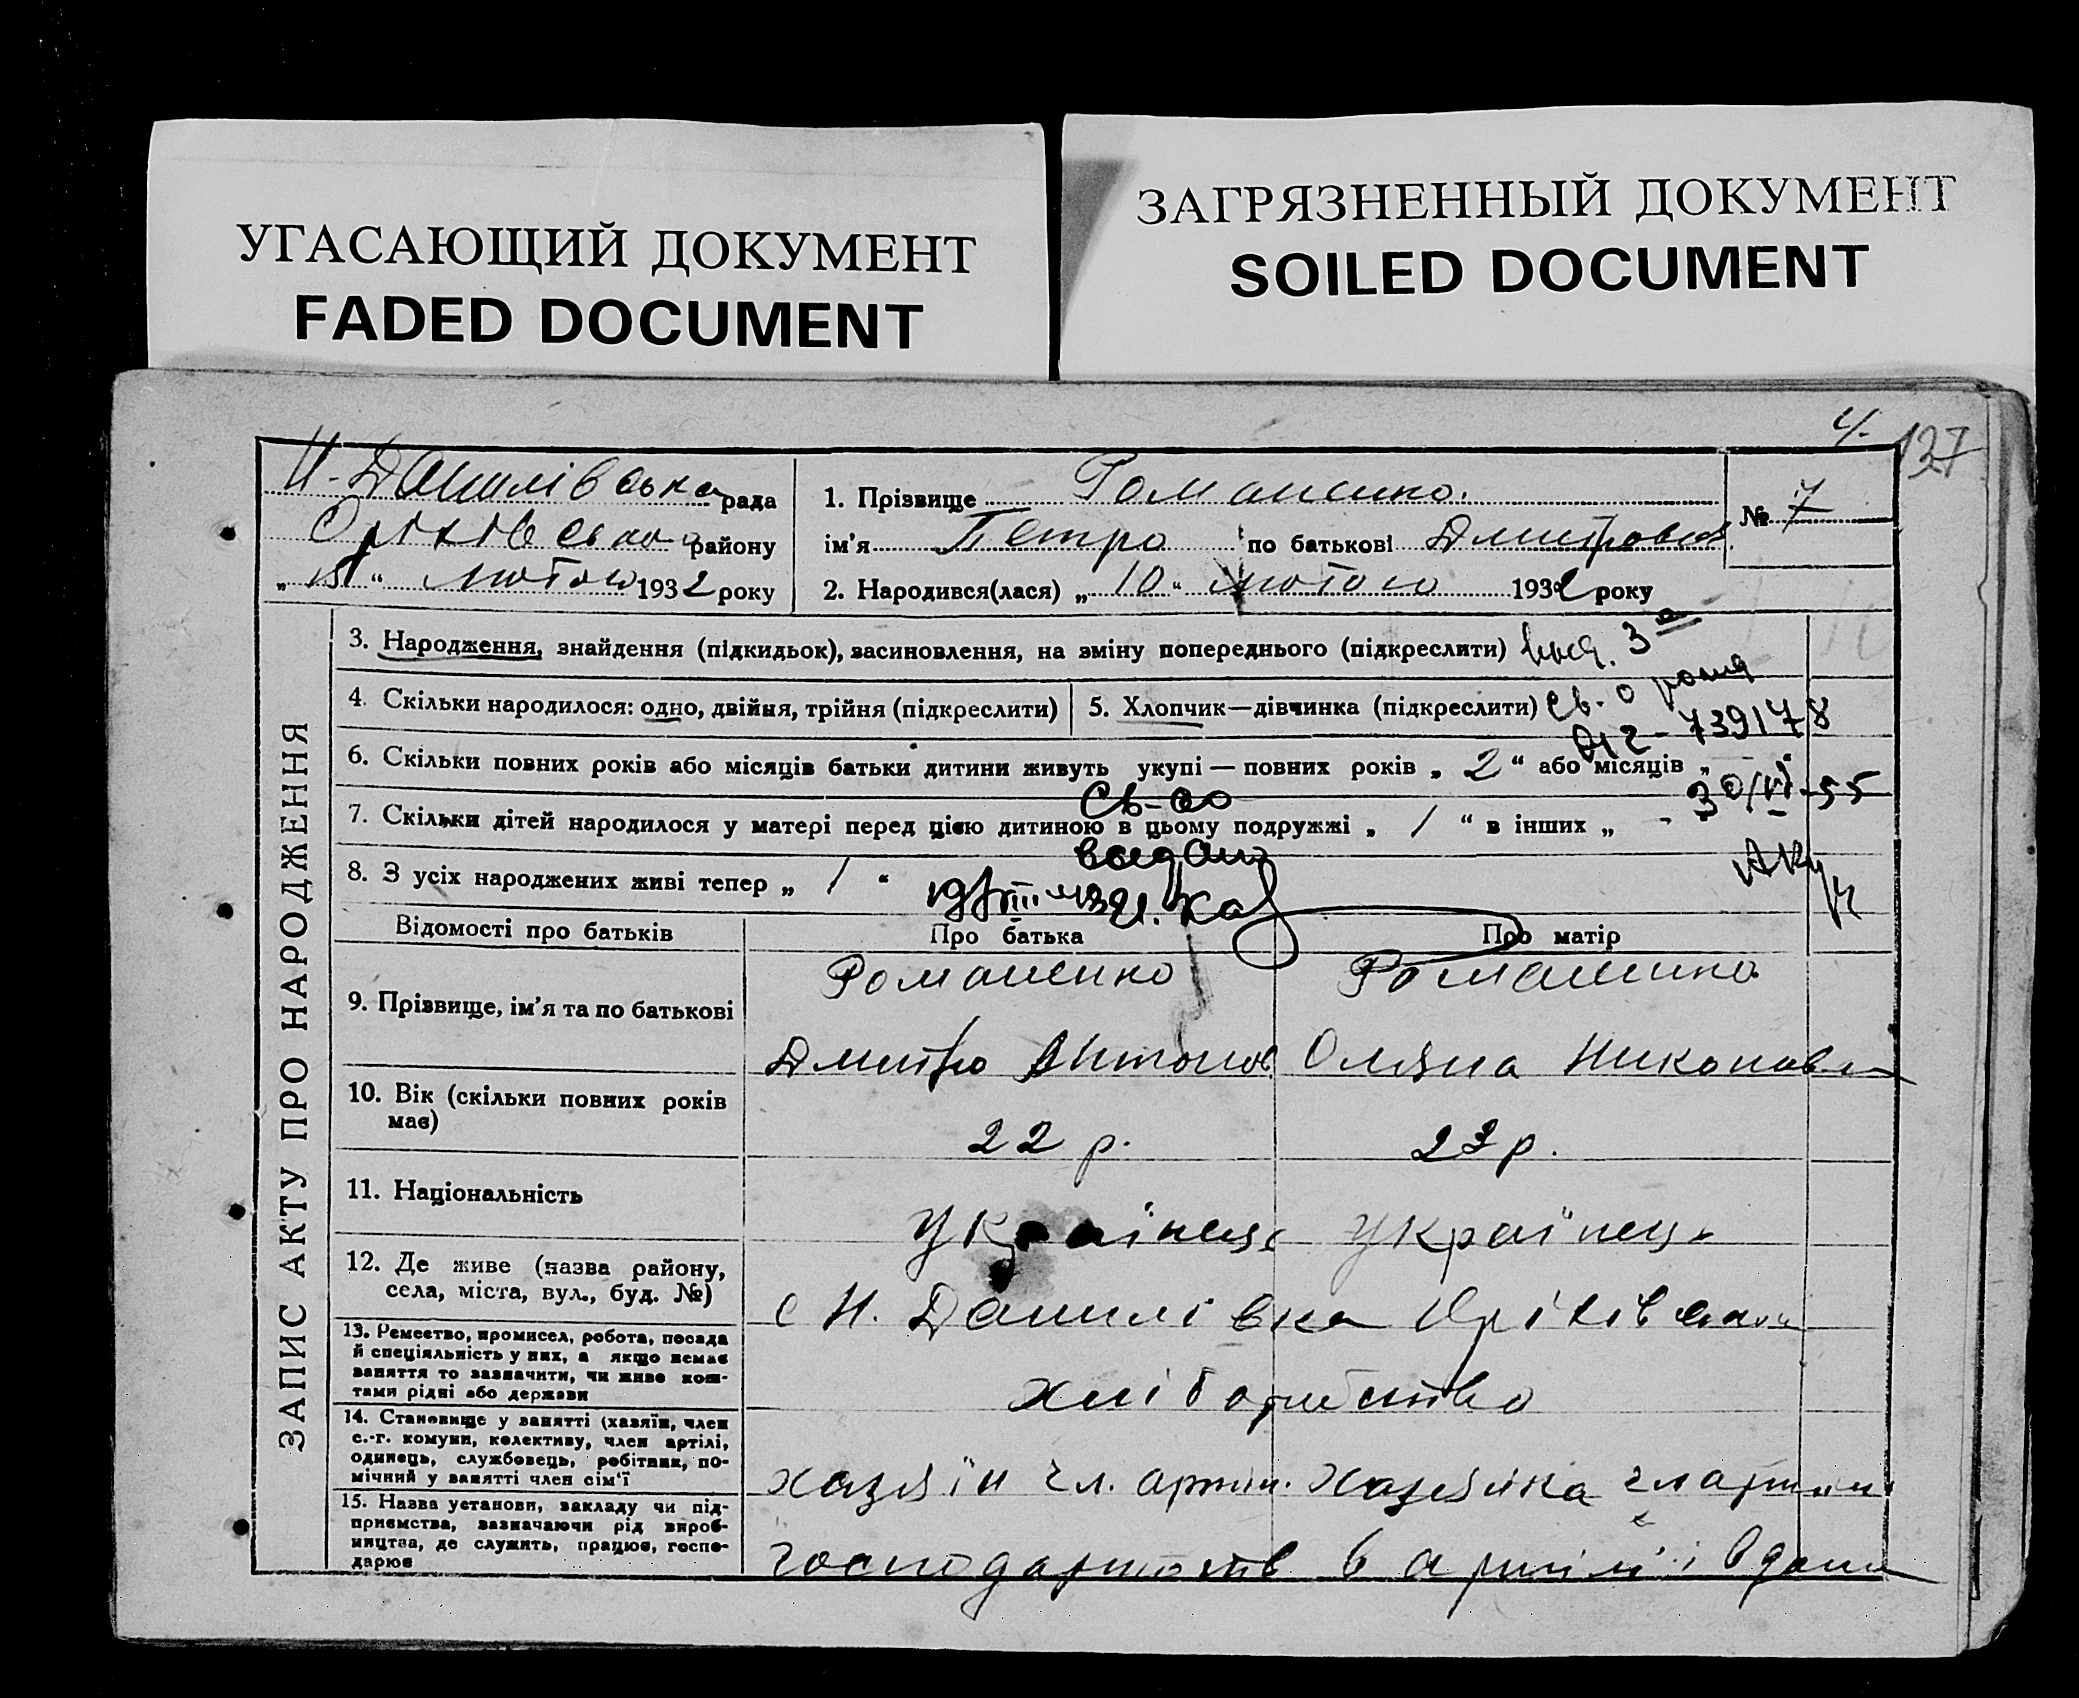 УГАСАЮЩИЙ ДОКУМЕНТ
FADED DOCUMENT
ЗАГРЯЗНЕННЫЙ ДОКУМЕНТ
SOILED DOCUMENT
127
Н-Данилівська рада
Оріхівського району
„ “ лютого 1932 року
1. Прізвище Романенко.
ім'я Петро по батькові Дмитрович
2. Народився(лася) „ 10 “ лютого 1932 року
№ 7
ЗАПИС АКТУ ПРО НАРОДЖЕННЯ
3. Народження, знайдення (підкидьок), засиновлення, на зміну попереднього (підкреслити)
4. Скільки народилося: одно, двійня, трійня (підкреслити)
5. Хлопчик—дівчинка (підкреслити)
Св. о рожд
739178
6. Скільки повних років або місяців батьки дитини живуть укупі — повних років „ 2 “ або місяців „ - “
30/VI-55
Св-во
7. Скільки дітей народилося у матері перед цією дитиною в цьому подружжі „ 1 “ в інших „ -
8. З усіх народжених живі тепер „ 1 “
Відомості про батьків
Про батька
Про матір
9. Прізвище, ім'я та по батькові
Романенко
Романенко
Дмитро Антонов
Оляна Никоновна
10. Вік (скільки повних років має)
22 р.
23 р.
11. Національність
Українець
Українець
12. Де живе (назва району, села, міста, вул., буд. №)
с Н. Данилівка Оріхівськ
13. Ремество, промисел, робота, посада й спеціяльність у них, а якщо немає заняття то зазначити, чи живе коштами рідні або держави
хліборобство
14. Становище у занятті (хазяїн, член с.-г. комуни, колективу, член артілі, одинець, службовець, робітник, помічний у занятті член сім'ї
хазяїн чл. артіл.
хазяйка чл артіл
15. Назва установи, закладу чи підприємства, зазначаючи рід виробництва, де служить, працює, господарює
в артілі і вдома